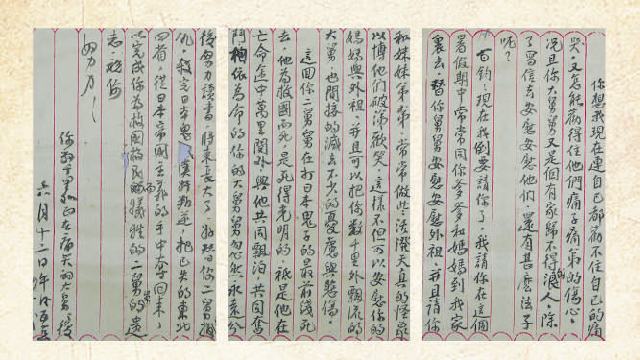 你想我現在連自己都 不住自己的痛
哭,又怎能 得住他們痛子痛弟的傷心。
况且你大舅舅又是個有家歸不得的浪人,除
了寫信去安慰安慰他們,還有甚麼法子
呢?
百鈞:現在我倒要請你了。我請你在這個
暑假期中常常同你爹爹和媽媽到我家
裏去,替你舅舅安慰安慰外祖,并且請你
和妹妹弟弟,常常做些活潑天真的怪
以博他們破涕歡笑。這樣不但可以安慰你的
媽媽與外祖,并且可以把你數千里外飄流的
大舅也間接的減去不少的憂慮與悲傷。
這回你二舅舅在打日本鬼子的最前綫死
去,他為救國而死,是死得光明的。祇是他在
亡命途中萬里關外與他共同飄泊,共同奮
鬥相依為命的你的大舅舅忽然永遠分
後努力讀書,將來長大了,好替你二舅
仇,殺完日本鬼 漢奸叛逆,把已失的東北
四省,從日本帝國主義的手中奪回來,
以完成你為救國救民而犧牲的二舅的遺
志。祝你
努力!
你 正在痛哭的大舅復
六月十二日午